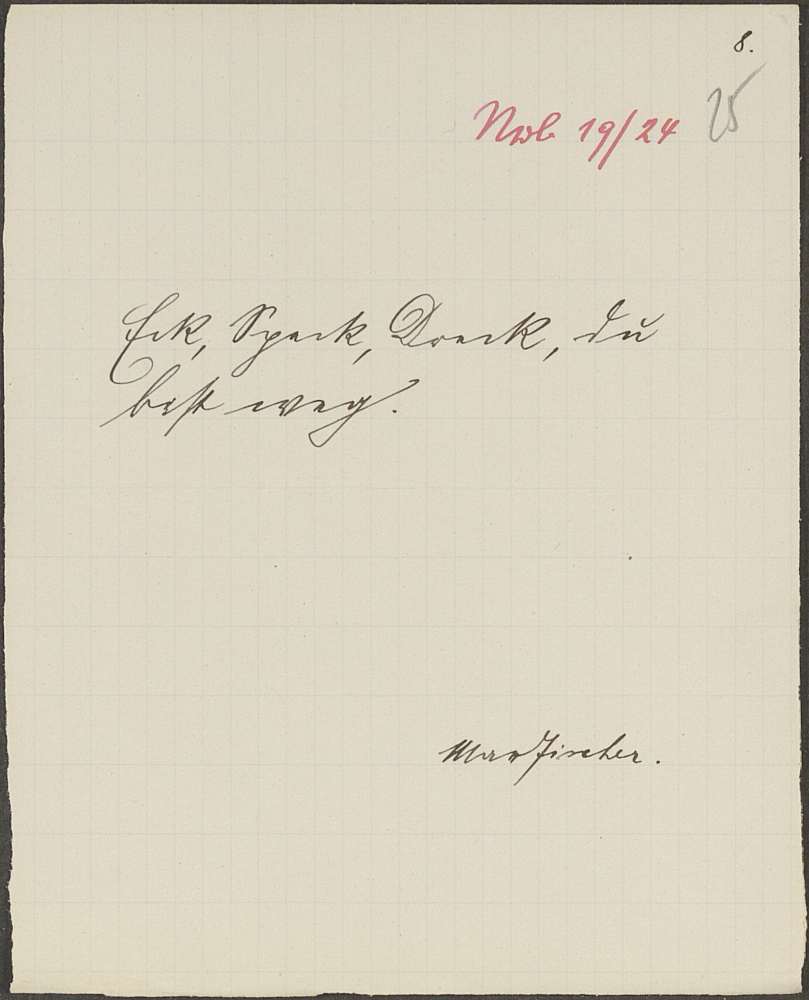 8.
Nob 19/24 25
Eck, Speck, Dreck, du
best weg.
Max Fischer.